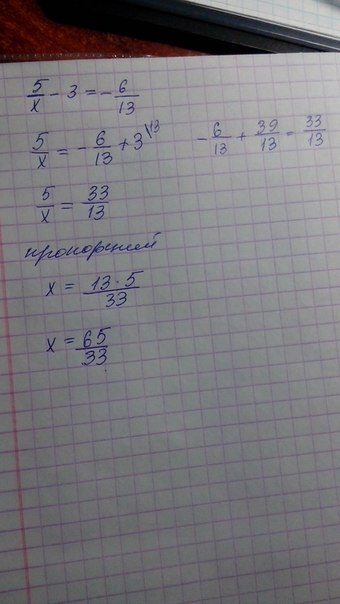 5/x - 3 = -6/13
5/x = -6/13 + 3\13
-6/13 + 39/13 = 33/13
5/x = 33/13
пропорцией
x = 13·5/33
x = 65/33